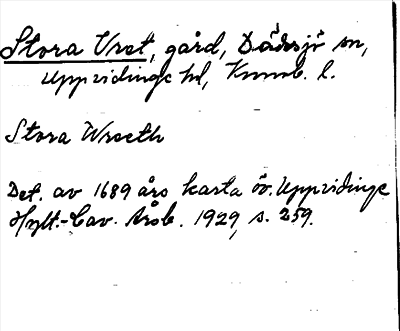 Stora Vret, gård, Dädesjö sn,
Uppvidinge hd, Kronob. l.
Stora Wraeth
Det. av 1689 års karta öv. Uppvidinge
Hylt.-Cav. Årsb. 1929, s. 259.